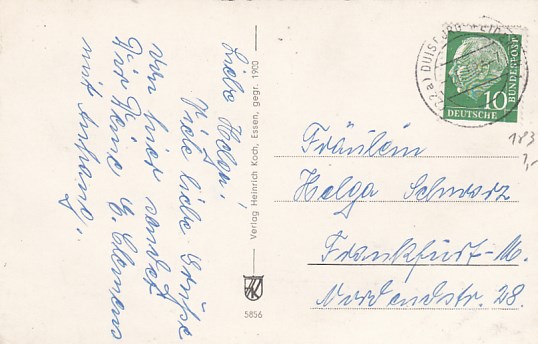 Liebe Helga!
Viele liebe Grüsse
von hier sendet
Dir Deine E. Clemens
mit Anhang.
Verlag Heinrich Koch, Essen, gegr. 1900
HK
5856
(22a) DUISBURG
10
DEUTSCHE
BUNDESPOST
183
1,-
Fräulein
Helga Schwarz
Frankfurt-M.
Nordendstr. 28.